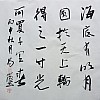 海底有明月
圓於天上輪
得之一寸光
可買千里春